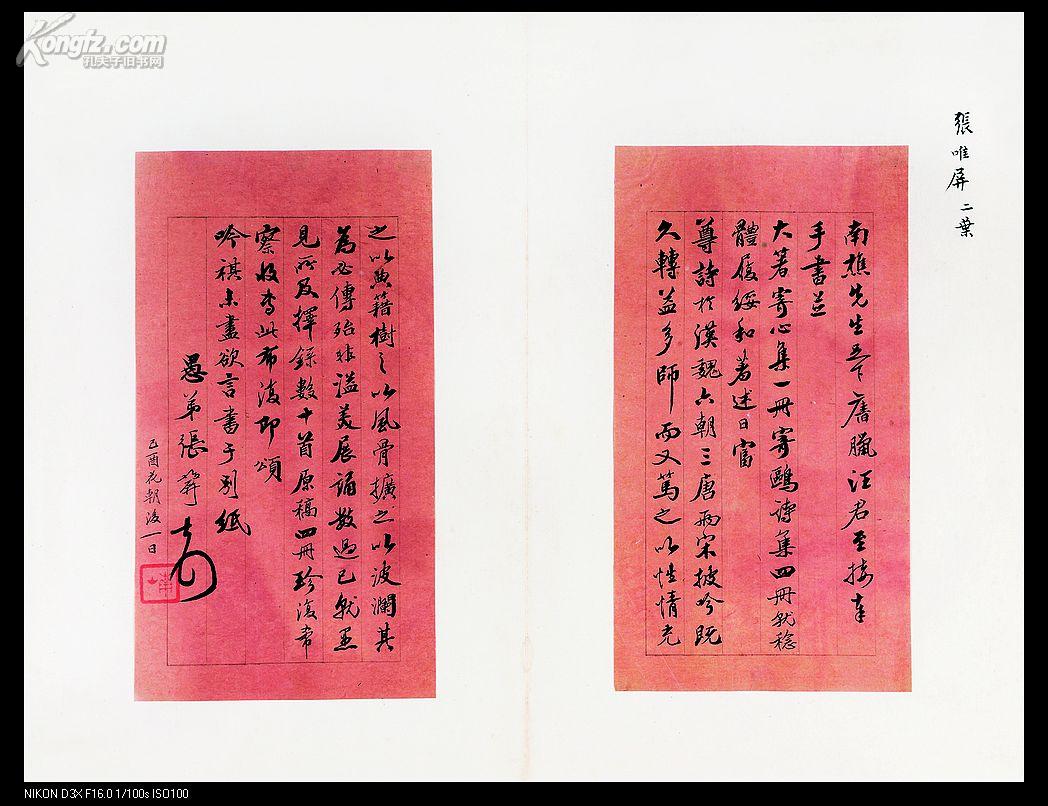 Kongfz.com
孔夫子旧书网
張唯屏二葉
南樵先生吾下舊臘江君至接奉
手書並
大著寄心集一冊寄鷗詩集四冊就稔
體履綏和著述日富
尊詩於漢魏六朝三唐兩宋披吟既
久轉益多師而又篤之以性情充
之以典籍樹之以風骨擴之以波瀾其
為必傳殆非溢美展誦數過已就
見所及擇錄數十首原稿四冊珍復希
察收專此布復即頌
吟祺未盡欲言書于別紙
愚弟張
己酉花朝後一日
NIKON D3X F16.0 1/100s ISO100